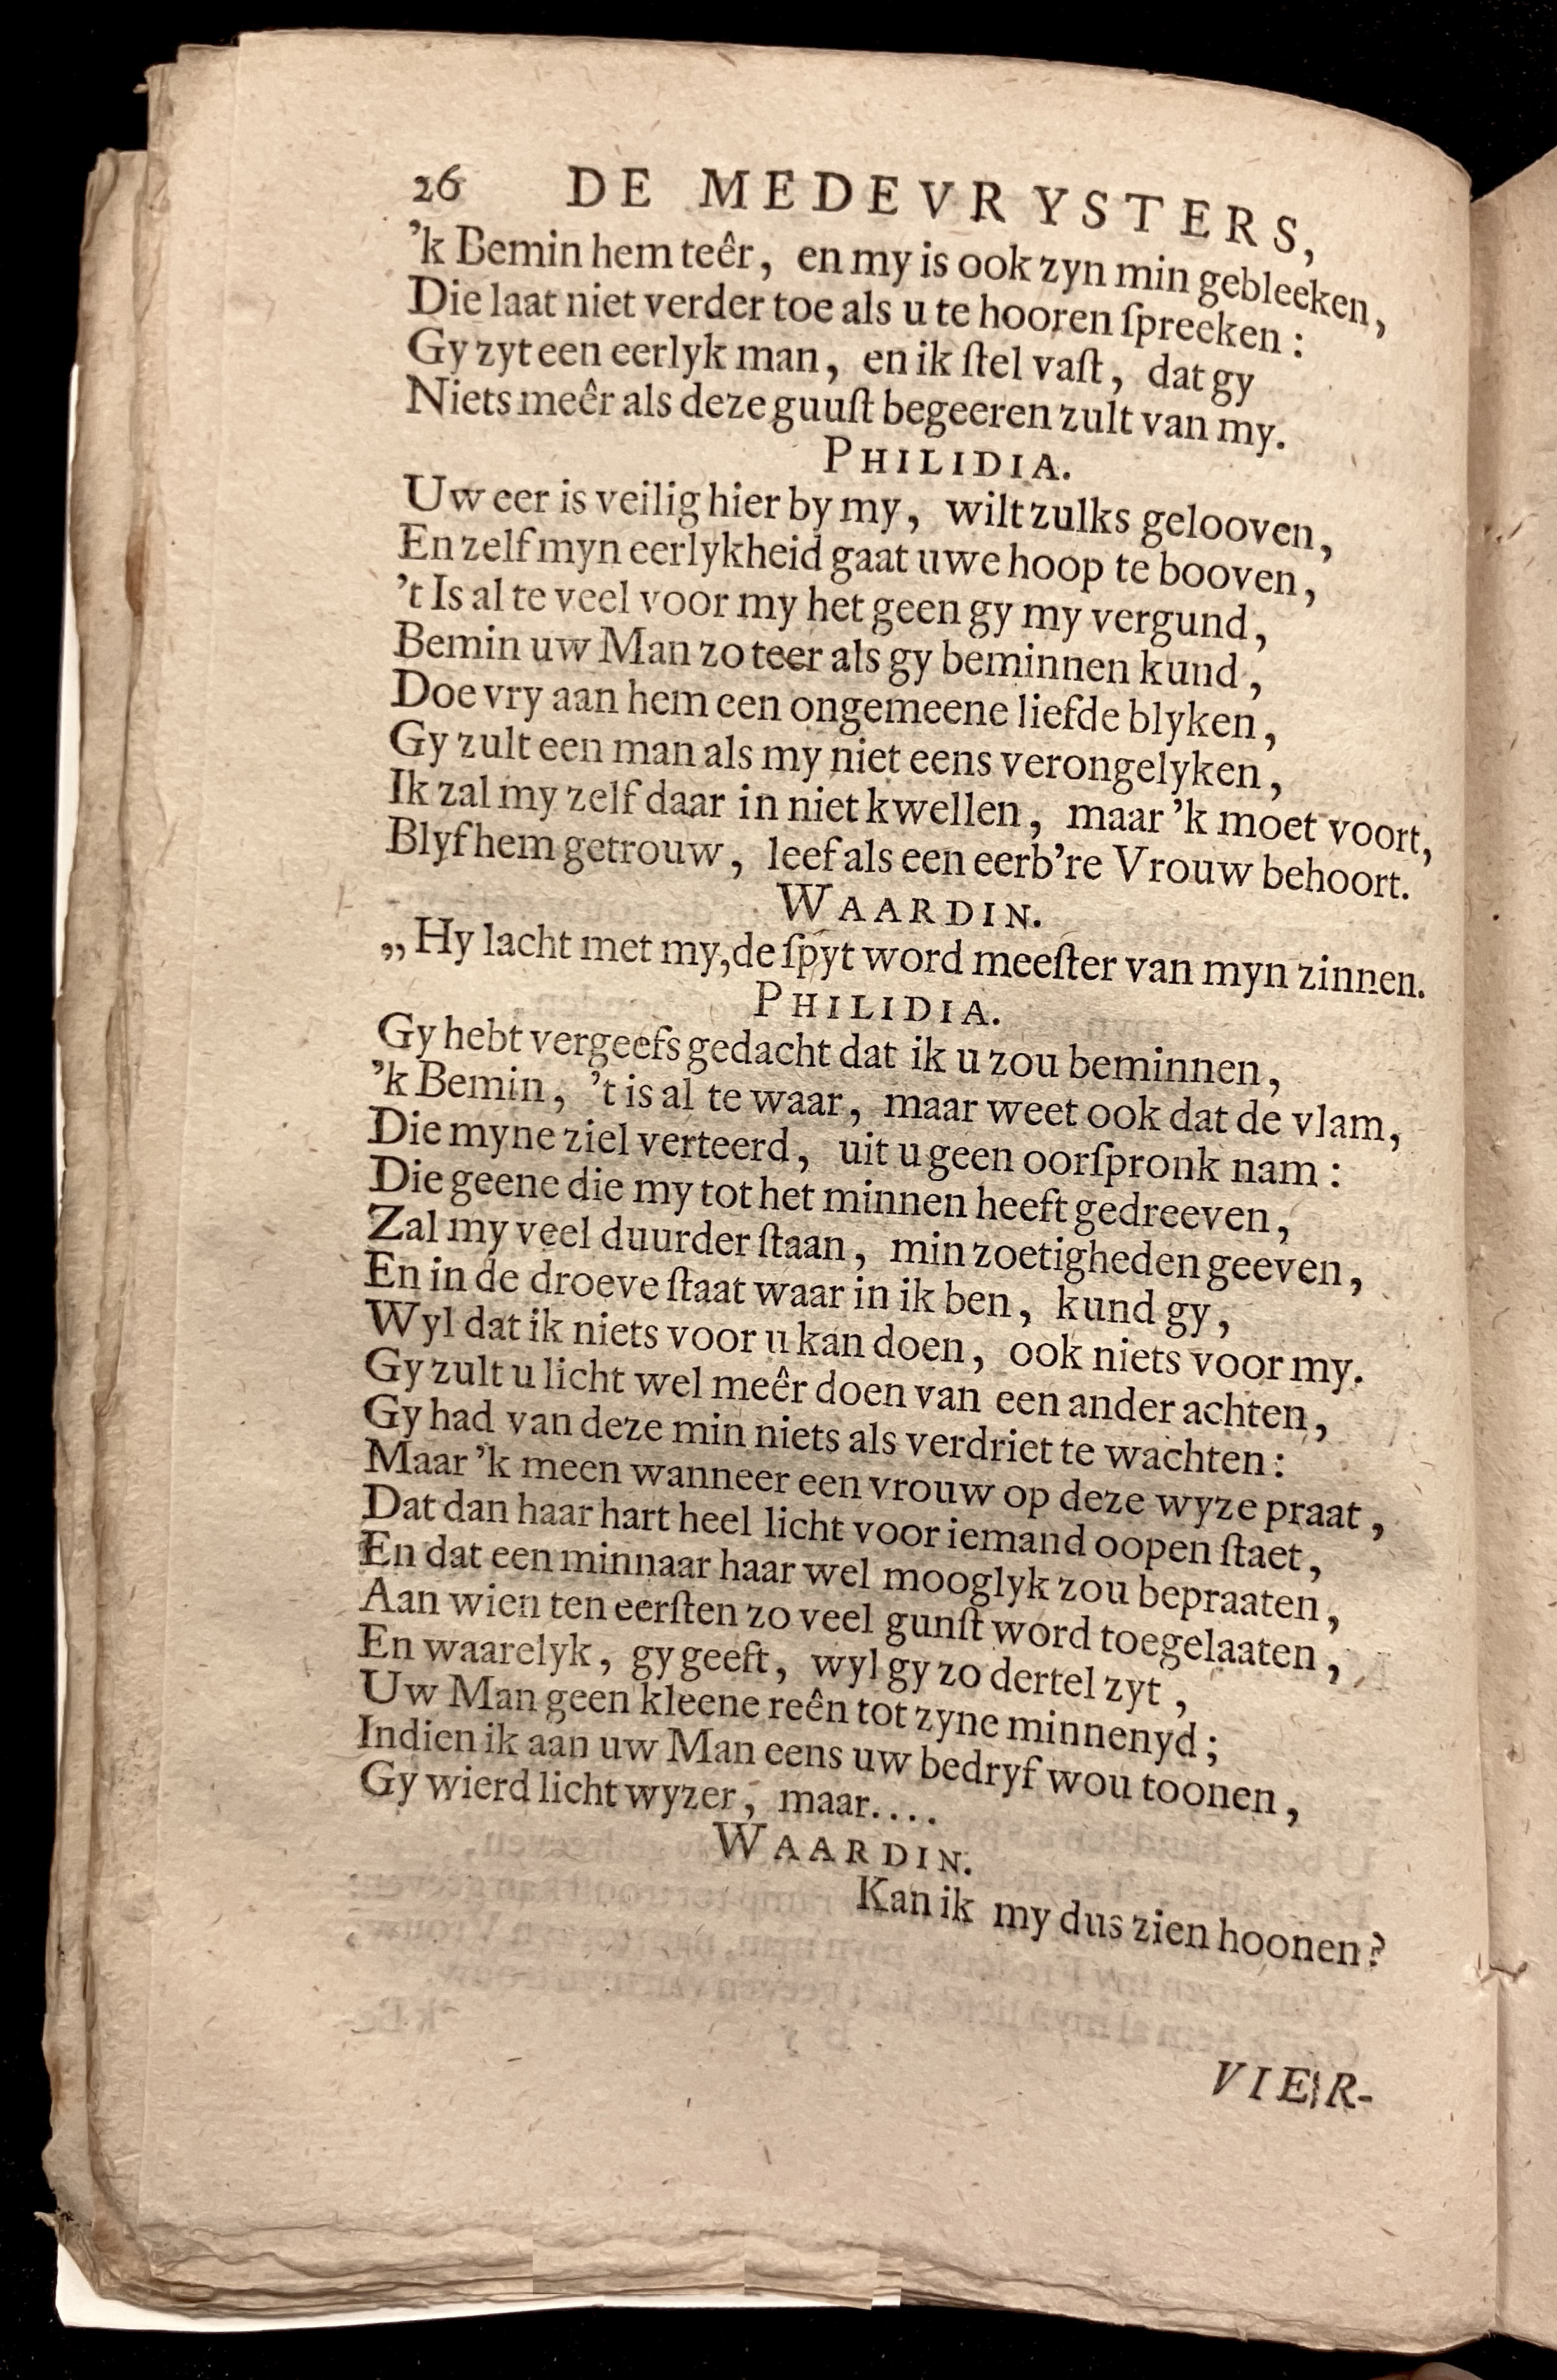 26 DE MEDEVRYSTERS,
’k Bemin hem teêr, en my is ook zyn min gebleeken,
Die laat niet verder toe als u te hooren ſpreeken:
Gy zyt een eerlyk man, en ik ſtel vaſt, dat gy
Niets meêr als deze guuſt begeeren zult van my.
PHILIDIA.
Uw eer is veilig hier by my, wilt zulks gelooven,
En zelf myn eerlykheid gaat uwe hoop te booven,
’t Is al te veel voor my het geen gy my vergund,
Bemin uw Man zo teer als gy beminnen kund,
Doe vry aan hem een ongemeene liefde blyken,
Gy zult een man als my niet eens verongelyken,
Ik zal my zelf daar in niet kwellen, maar ’k moet voort,
Blyf hem getrouw, leef als een eerb’re Vrouw behoort.
WAARDIN.
„ Hy lacht met my, de ſpyt word meeſter van myn zinnen.
PHILIDIA.
Gy hebt vergeefs gedacht dat ik u zou beminnen,
’k Bemin, ’t is al te waar, maar weet ook dat de vlam,
Die myne ziel verteerd, uit u geen oorſpronk nam:
Die geene die my tot het minnen heeft gedreeven,
Zal my veel duurder ſtaan, min zoetigheden geeven,
En in de droeve ſtaat waar in ik ben, kund gy,
Wyl dat ik niets voor u kan doen, ook niets voor my.
Gy zult u licht wel meêr doen van een ander achten,
Gy had van deze min niets als verdriet te wachten:
Maar ’k meen wanneer een vrouw op deze wyze praat,
Dat dan haar hart heel licht voor iemand oopen ſtaet,
En dat een minnaar haar wel mooglyk zou bepraaten,
Aan wien ten eerſten zo veel gunſt word toegelaaten,
En waarelyk, gy geeft, wyl gy zo dertel zyt,
Uw Man geen kleene reên tot zyne minnenyd;
Indien ik aan uw Man eens uw bedryf wou toonen,
Gy wierd licht wyzer, maar....
WAARDIN.
Kan ik my dus zien hoonen?
VIER-